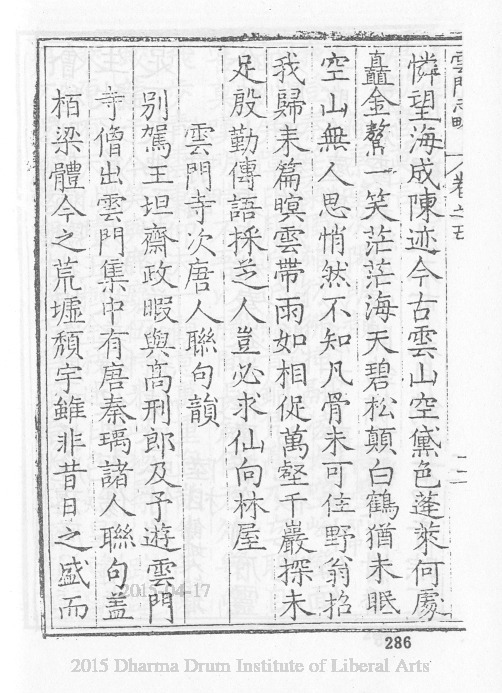 雲門志略 卷之五 二二
憐望海成陳迹今古雲山空黛色蓬萊何處
矗金鰲一笑茫茫海天碧松顛白鶴猶未眠
空山無人思悄然不知凡骨未可住野翁招
我歸來篇暝雲帶雨如相促萬壑千巖探未
足殷勤傳語採芝人豈必求仙向林屋
雲門寺次唐人聯句韻
別駕王坦齋政暇與高刑郎及予遊雲門
寺僧出雲門集中有唐秦瑀諸人聯句盖
栢梁體今之荒墟頽宇雖非昔日之盛而
2015-04-17
286
2015 Dharma Drum Institute of Liberal Arts